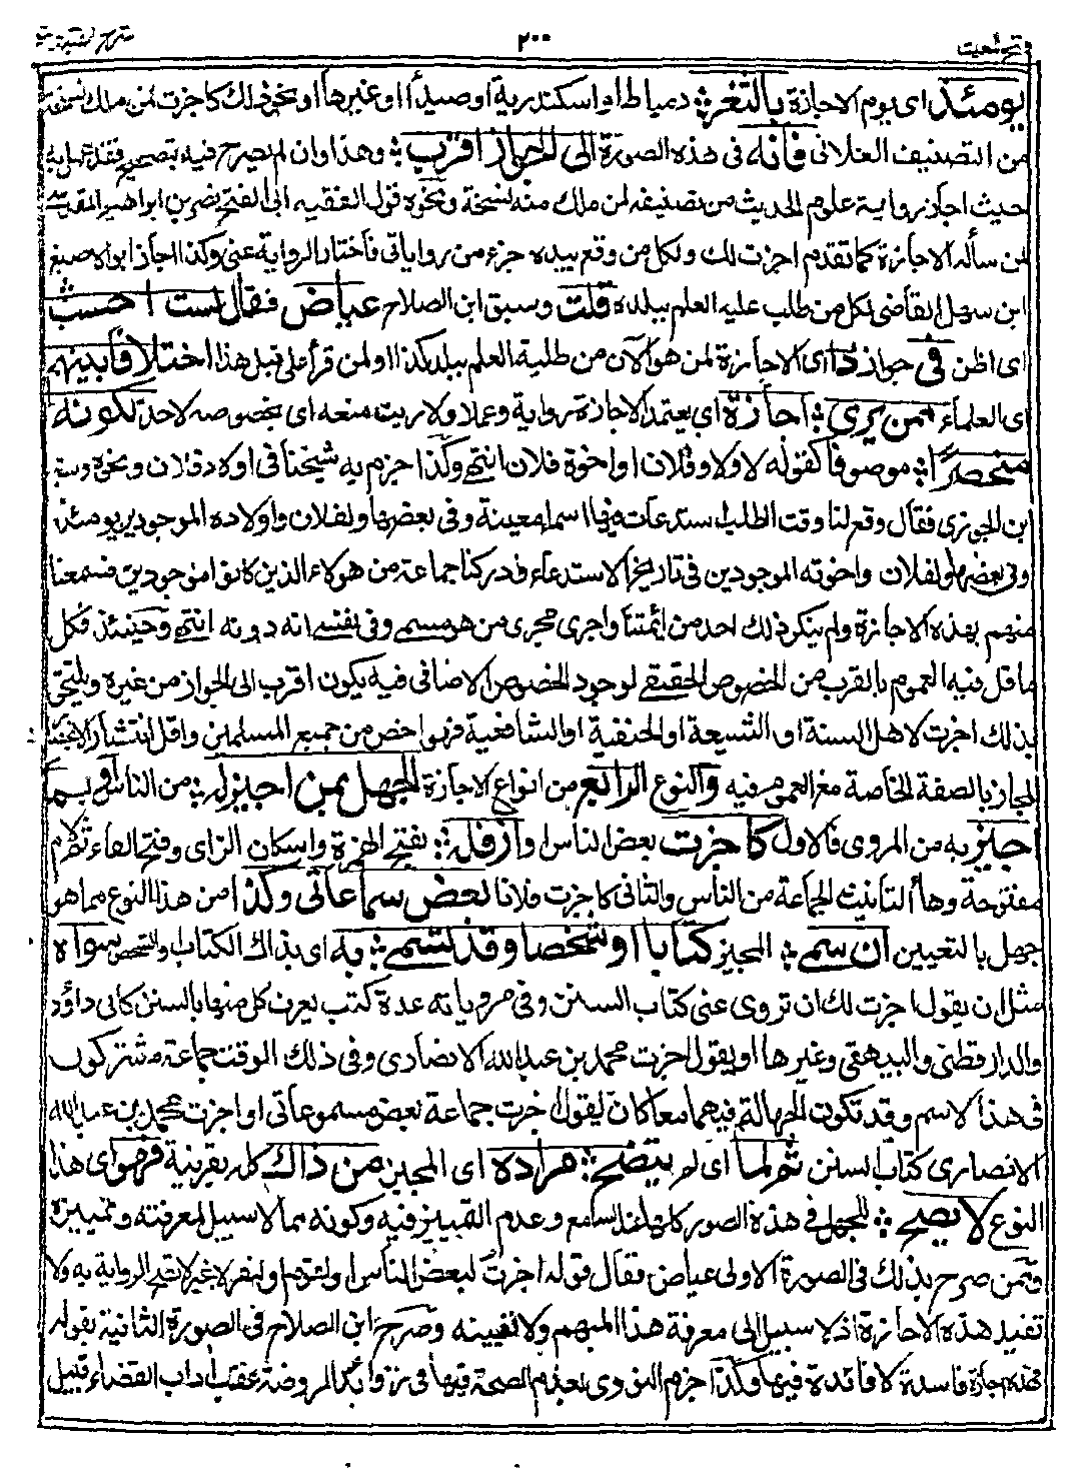 فتح المغيث
٢٠٠
شرح الفية الحديث
يومئذ اى يوم الاجازة بالثغر ؛ دمياط او اسكندرية او صيدا او غيرها او نحو ذلك كاجزت لمن ملك نسخة
من التصنيف الفلانى فانه فى هذه الصورة الى الجواز اقرب ؛ وهذا وان لم يصرح فيه بتصحيح فقد عمل به
حيث اجاز رواية علوم الحديث من تصنيفه لمن ملك منه نسخة ونحوه قول الفقيه ابى الفتح نصر بن ابراهيم المقدسى
لمن سأله الاجازة كما تقدم اجزت لك ولكل من وقع بيده جزء من رواياتى فاختار الرواية عنى وكذا اجاز ابو الاصبغ
ابن سهل القاضى لكل من طلب عليه العلم ببلده قلت وسبق ابن الصلاح عياض فقال لست احسب
اى اظن فى جواز ذا اى الاجازة لمن هو الآن من طلبة العلم ببلد كذا او لمن قرأ على قبل هذا اختلافا بينهم
اى العلماء ممن يرى ؛ اجازة اى يعتمد الاجازة رواية وعملا ولا ريت منعه اى بخصوصه لاحد لكونه
منحصرا ؛ موصوفا كقوله لاولاد فلان او اخوة فلان انتهى وكذا جزم به شيخنا فى اولاد فلان ونحوه وسبقه
ابن الجوزى فقال وقع لنا وقت الطلب استدعآت فيها اسماء معينة وفى بعضها ولفلان واولاده الموجودين يومئذ
وفى بعضها ولفلان واخوته الموجودين فى تاريخ الاستدعاء فادركنا جماعة من هولاء الذين كانوا موجودين فسمعنا
منهم بهذه الاجازة ولم ينكر ذلك احد من ائمتنا واجرى مجرى من هو مسمى وفى نفسى انه دونه انتهى وحينئذ فكل
ما قل فيه العموم بالقرب من الخصوص الحقيقى لوجود الخصوص الاضافى فيه يكون اقرب الى الجواز من غيره ويلتحق
بذلك اجزت لاهل السنة او الشيعة او الحنفية او الشافعية فهو اخص من جميع المسلمين واقل انتشارا لانحصار
المجاز بالصفة الخاصة مع العموم فيه والنوع الرابع من انواع الاجازة الجهل بمن اجيز له ؛ من الناس او بما
اجيز به من المروى فالاول كاجزت بعض الناس او ازفلة ؛ بفتح الهمزة واسكان الزاى وفتح الفاء ثم لام
مفتوحة وهاء التانيث الجماعة من الناس والثانى كاجزت فلانا بعض سماعاتى وكذا من هذا النوع مما هو
جهل بالتعيين ان سمى ؛ المجيز كتابا او شخصا وقد تسمى ؛ به اى بذاك الكتاب والشخص سواه
مثل ان يقول اجزت لك ان تروى عنى كتاب السنن وفى مروياته عدة كتب يعرف كل منها بالسنن كابى داؤد
والدارقطنى والبيهقى وغيرها او يقول اجزت محمد بن عبد الله الانصارى وفى ذلك الوقت جماعة مشتركون
فى هذا الاسم وقد تكون الجهالة فيهما معا كان يقول اجزت جماعة بعض مسموعاتى او اجزت محمد بن عبد الله
الانصارى كتاب السنن ثم لما اى لم يتضح ؛ مراده اى المجيز من ذاك كله بقرينة فهو اى هذا
النوع لا يصح ؛ للجهل فى هذه الصور كلها عند السامع وعدم التمييز فيه وكونه مما لا سبيل لمعرفته وتمييزه
فممن صرح بذلك فى الصورة الاولى عياض فقال قوله اجزت لبعض الناس او لقوم او لنفر لا غير لا تصح الرواية به ولا
تفيد هذه الاجازة اذ لا سبيل الى معرفة هذا المبهم ولا تعيينه وصرح ابن الصلاح فى الصورة الثانية بقوله
فهذه اجازة فاسدة لا فائدة فيها وكذا جزم النووى بعدم الصحة فيها فى زوائد الروضة عقب اداب القضاء قبيل